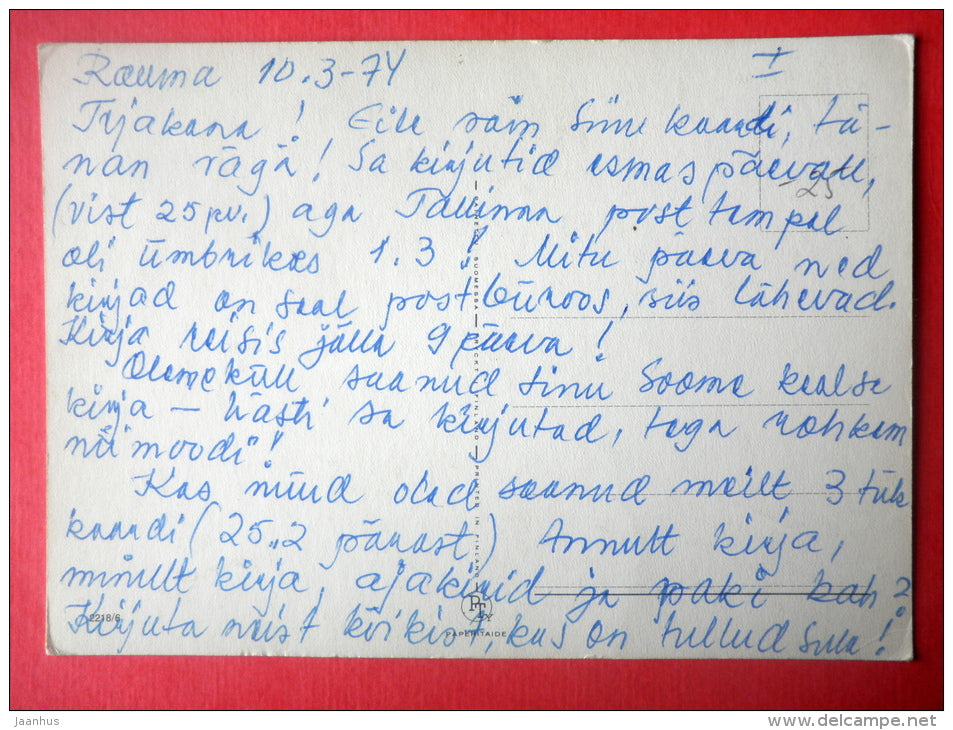 Rauma 10.3-74 I
Tirjakana! Eile sain Sinu kaardi, tä-
nan väga! Sa kirjutid esmaspäeval,
25
(vist 25 pv.) aga Tallinna posttempel
oli ümbrikus 1.3! Mitu päeva ned
kirjad on seal postbüroos, siis lähevad.
Kirja reisis jälle 9 päeva!
Oleme küll saanud sinu Soome keelse
kirja – hästi sa kirjutad, tega rohkem
nii moodi!
Kas nüüd olad saanud meilt 3 tük
kaardi (25.2 pärast) Annult kirja,
minult kirja, ajakirid ja paki kah?
Kirjuta neist kõikist, kas on tullud sulle!
2218/6
PT OY
PAPERITAIDE
PRINTED IN FINLAND
Jaanhus
www.delcampe.net